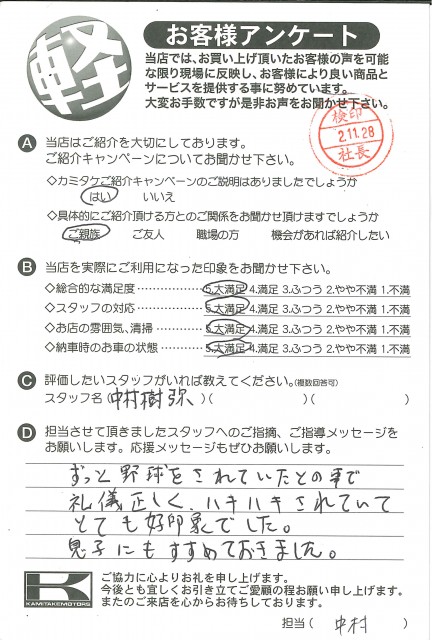 軽
お客様アンケート
当店では、お買い上げ頂いたお客様の声を可能
な限り現場に反映し、お客様により良い商品と
サービスを提供する事に努めています。
大変お手数ですが是非お声をお聞かせ下さい。
検印
2.11.28
社長
A 当店はご紹介を大切にしております。
ご紹介キャンペーンについてお聞かせ下さい。
◇カミタケご紹介キャンペーンのご説明はありましたでしょうか
はい いいえ
◇具体的にご紹介頂ける方とのご関係をお聞かせ頂けますでしょうか
ご親族 ご友人 職場の方 機会があれば紹介したい
B 当店を実際にご利用になった印象をお聞かせ下さい。
◇総合的な満足度 ……………… 5.大満足 4.満足 3.ふつう 2.やや不満 1.不満
◇スタッフの対応 ……………… 5.大満足 4.満足 3.ふつう 2.やや不満 1.不満
◇お店の雰囲気、清掃 ………… 5.大満足 4.満足 3.ふつう 2.やや不満 1.不満
◇納車時のお車の状態 ………… 5.大満足 4.満足 3.ふつう 2.やや不満 1.不満
C 評価したいスタッフがいれば教えてください。(複数回答可)
スタッフ名(中村樹弥、)( )( )
D 担当させて頂きましたスタッフへのご指摘、ご指導メッセージを
お願いします。応援メッセージもぜひお願いします。
ずっと野球をされていたとの事で
礼儀正しく、ハキハキされていて
とても好印象でした。
息子にもすすめておきました。
K
KAMITAKE MOTORS
ご協力に心よりお礼を申し上げます。
今後とも宜しくお引き立てご愛顧の程お願い申し上げます。
またのご来店を心からお待ちしております。
担当( 中村 )